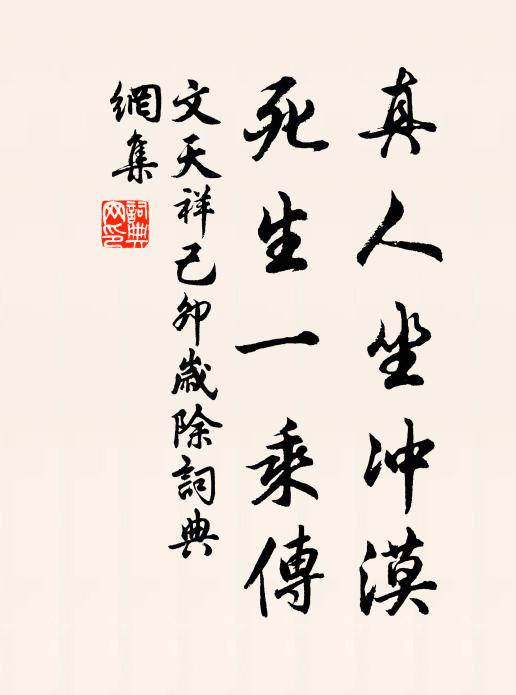 真人坐冲漠
死生一乘傳
文天祥己卯歲除詞典
網集
詞典網印